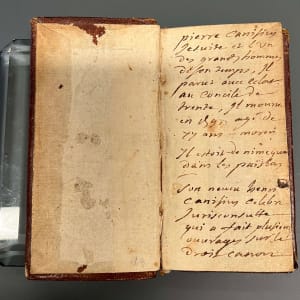 pierre Canisius
Jesuite et l'un
des grands hommes
de son temps, Il
parut avec eclat
au concile de
trente, Il mourut
en agé de
77 ans
Il estoit de nimegue
dans les païs bas
Son neveu henri
canisius celebre
Jurisconsulte
qui a fait plusieurs
ouvrages sur le
droit canon